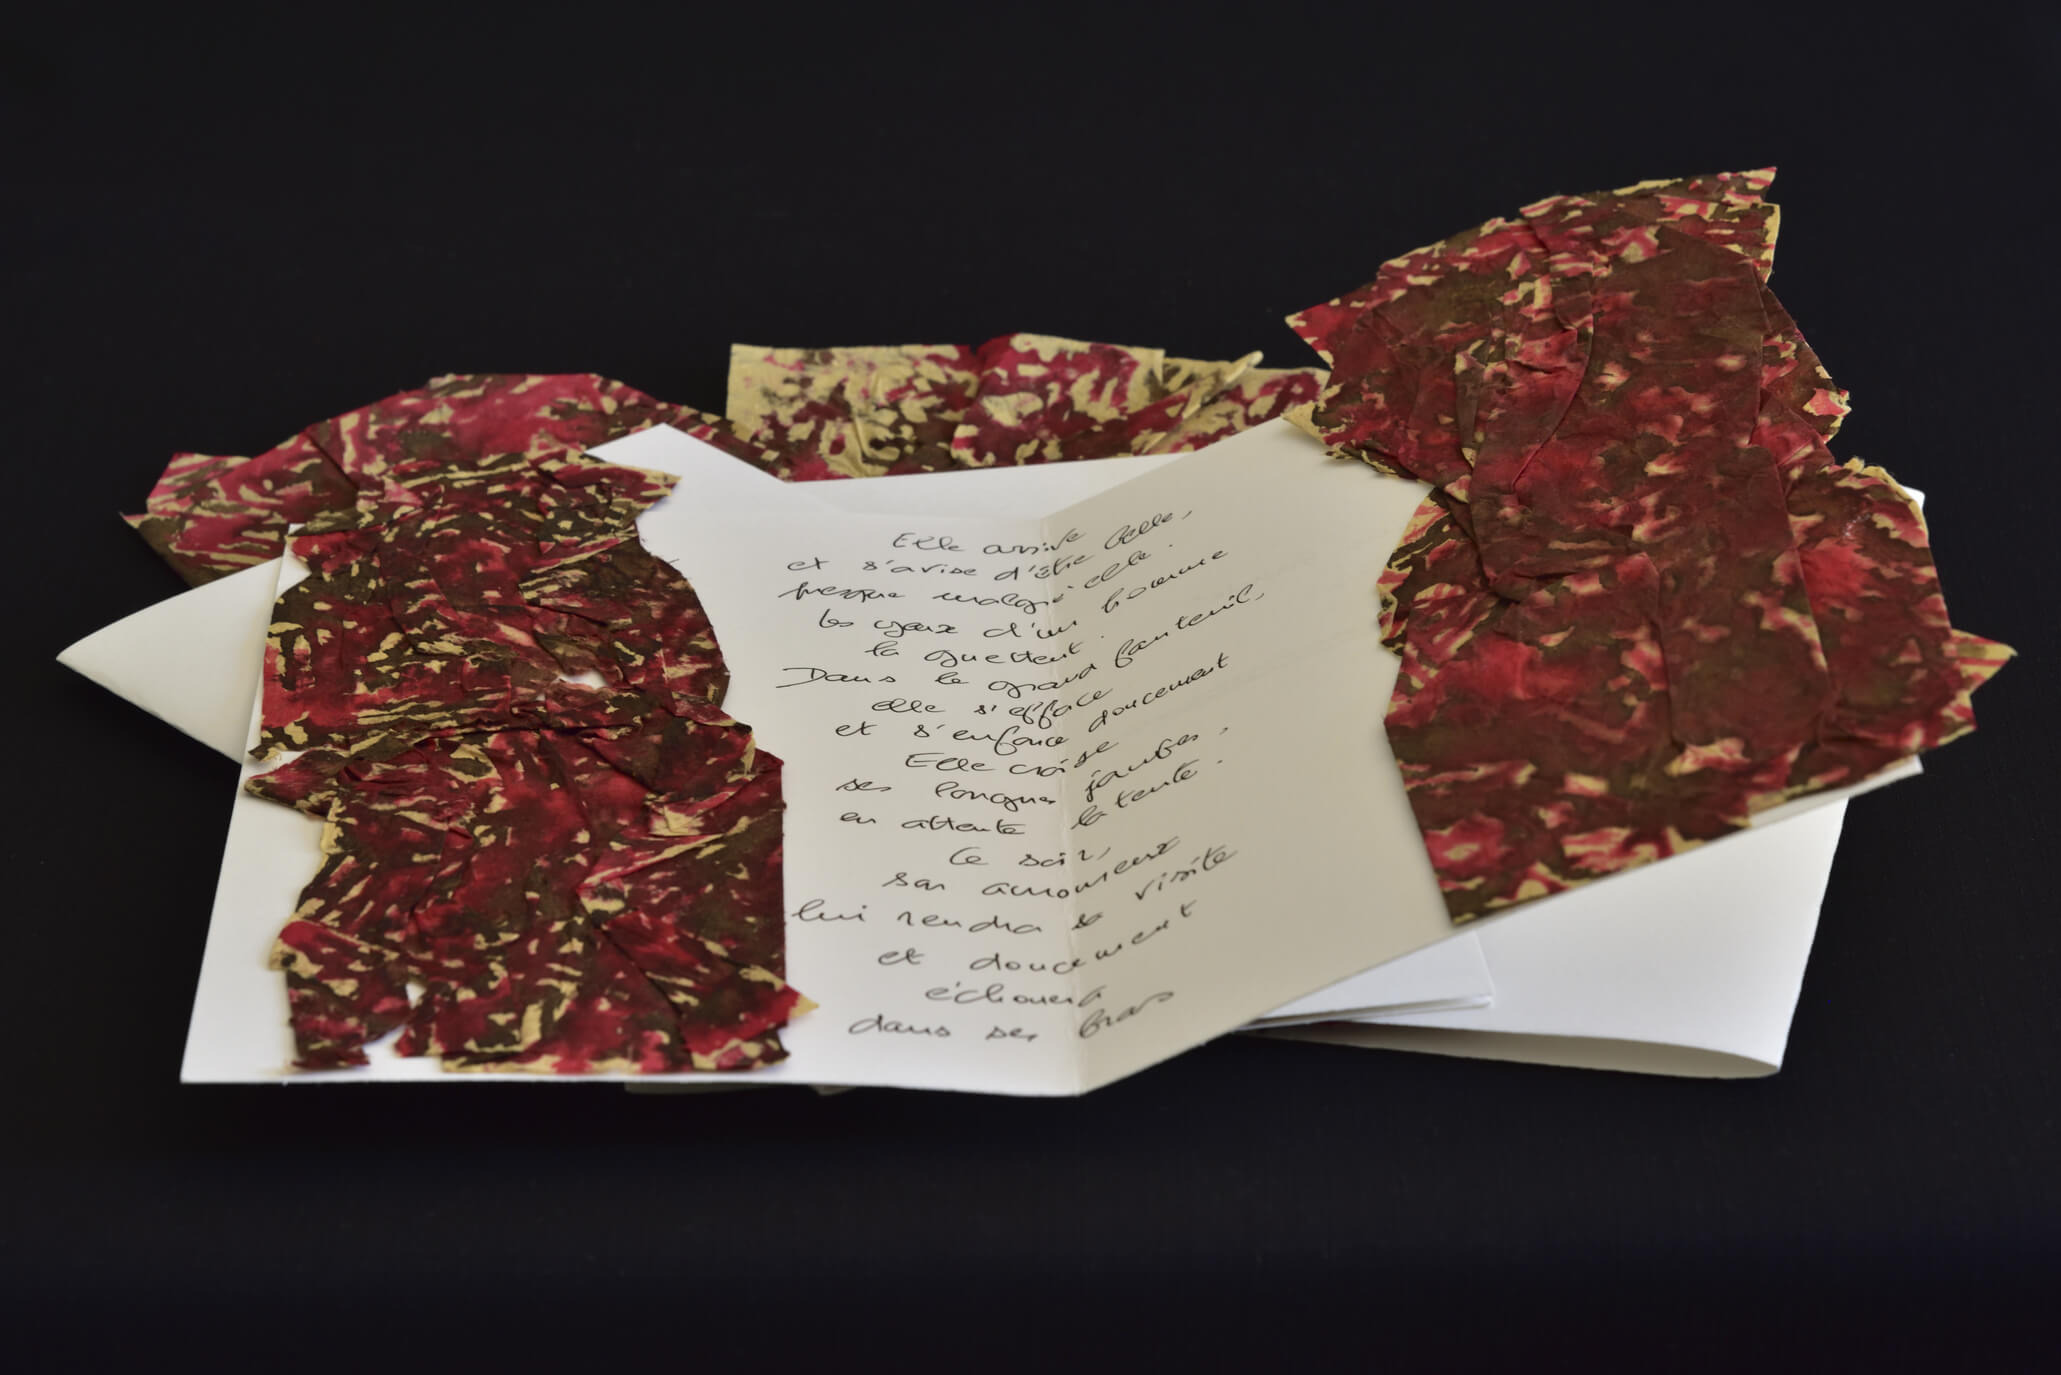 Elle arrive
et s'avise d'être belle,
presque malgré elle.
les yeux d'un homme
la guettent.
Dans le grand fauteuil,
elle s'efface
et s'enfonce doucement
Elle croise
ses longues jambes,
en attente
latente.
Le soir,
son amoureux
lui rendra visite
et doucement
échouera
dans ses bras